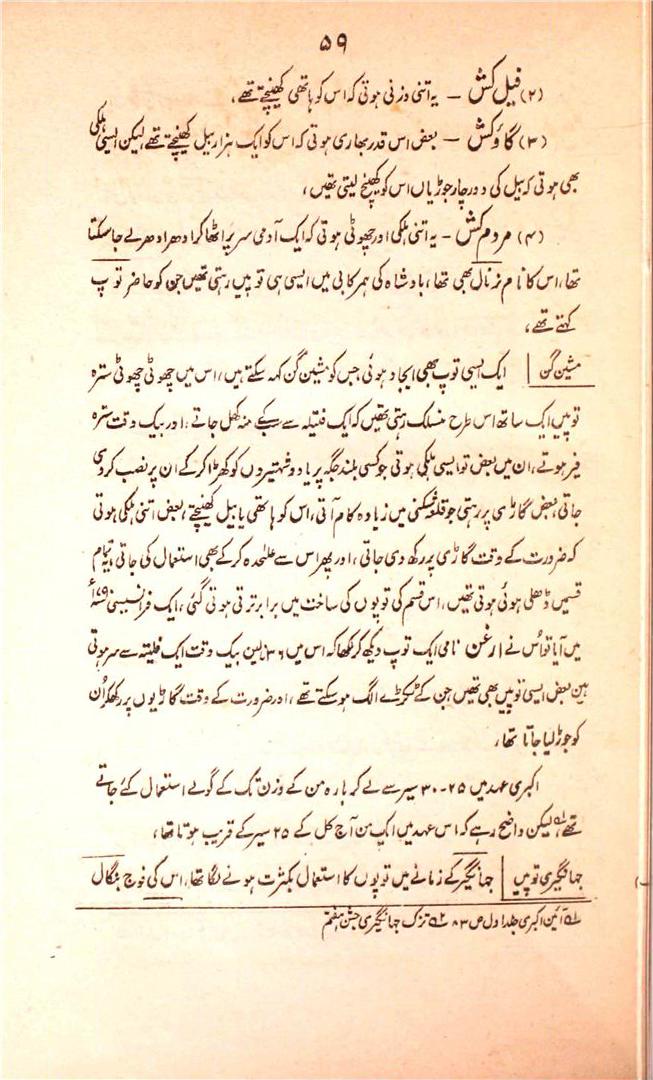 ۵۹
(۲) فیل کش – یہ اتنی وزنی ہوتی کہ اس کو ہاتھی کھینچتے تھے،
(۳) گاؤکش – بعض اس قدر بھاری ہوتی کہ اس کو ایک ہزار بیل کھینچتے تھے لیکن ایسی ہلکی
بھی ہوتی کہ بیل کی دو چار جوڑیاں اس کو کھینچ لیتی تھیں،
(۴) مردم کش – یہ اتنی ہلکی اور چھوٹی ہوتی کہ ایک آدمی سر پر اٹھا کر ادھر ادھر لے جا سکتا
تھا، اس کا نام نرنال بھی تھا، بادشاہ کی ہمرکابی میں ایسی ہی توپیں رہتی تھیں جن کو حاضر توپ
کہتے تھے،
مشین گن | ایک ایسی توپ بھی ایجاد ہوئی جس کو مشین گن کہہ سکتے ہیں، اس میں چھوٹی چھوٹی سترہ
توپیں ایک ساتھ اس طرح منسلک رہتی تھیں کہ ایک فتیلہ سے سب کے منہ کھل جاتے، اور بیک وقت سترہ
فیر ہوتے، ان میں بعض تو ایسی ہلکی ہوتی جو کسی بلند جگہ پر یا دو شہتیروں کو کھڑا کر کے ان پر نصب کر دی
جاتی، بعض گاڑی پر رہتی جو قلعہ شکنی میں زیادہ کام آتی، اس کو ہاتھی یا بیل کھینچتے، بعض اتنی ہلکی ہوتی
کہ ضرورت کے وقت گاڑی پر رکھ دی جاتی، اور پھر اس سے علٰحدہ کر کے بھی استعمال کی جاتی، یہ تمام
قسمیں ڈھلی ہوئی ہوتی تھیں، اس قسم کی توپوں کی ساخت میں برابر ترقی ہوتی گئی، ایک فرانسیسی
میں آیا تو اُس نے ارغن نامی ایک توپ دیکھ کر لکھا کہ اس میں ۳۶ نالیں بیک وقت ایک فلیتہ سے سر ہوتی
ہیں بعض ایسی توپیں بھی تھیں جن کے ٹکڑے الگ ہو سکتے تھے، اور ضرورت کے وقت گاڑیوں پر رکھ کر اُن
کو جوڑ لیا جاتا تھا،
اکبری عہد میں ۲۵-۳۰ سیر سے لے کر بارہ من کے وزن تک کے گولے استعمال کئے جاتے
تھے، لیکن واضح رہے کہ اس عہد میں ایک من آج کل کے ۲۵ سیر کے قریب ہوتا تھا،
جہانگیری توپیں | جہانگیر کے زمانے میں توپوں کا استعمال بکثرت ہونے لگا تھا، اس کی فوج بنگال
۱؎ آئین اکبری جلد اول ص ۸۳ ۲؎ تزک جہانگیری جشن ہفتم